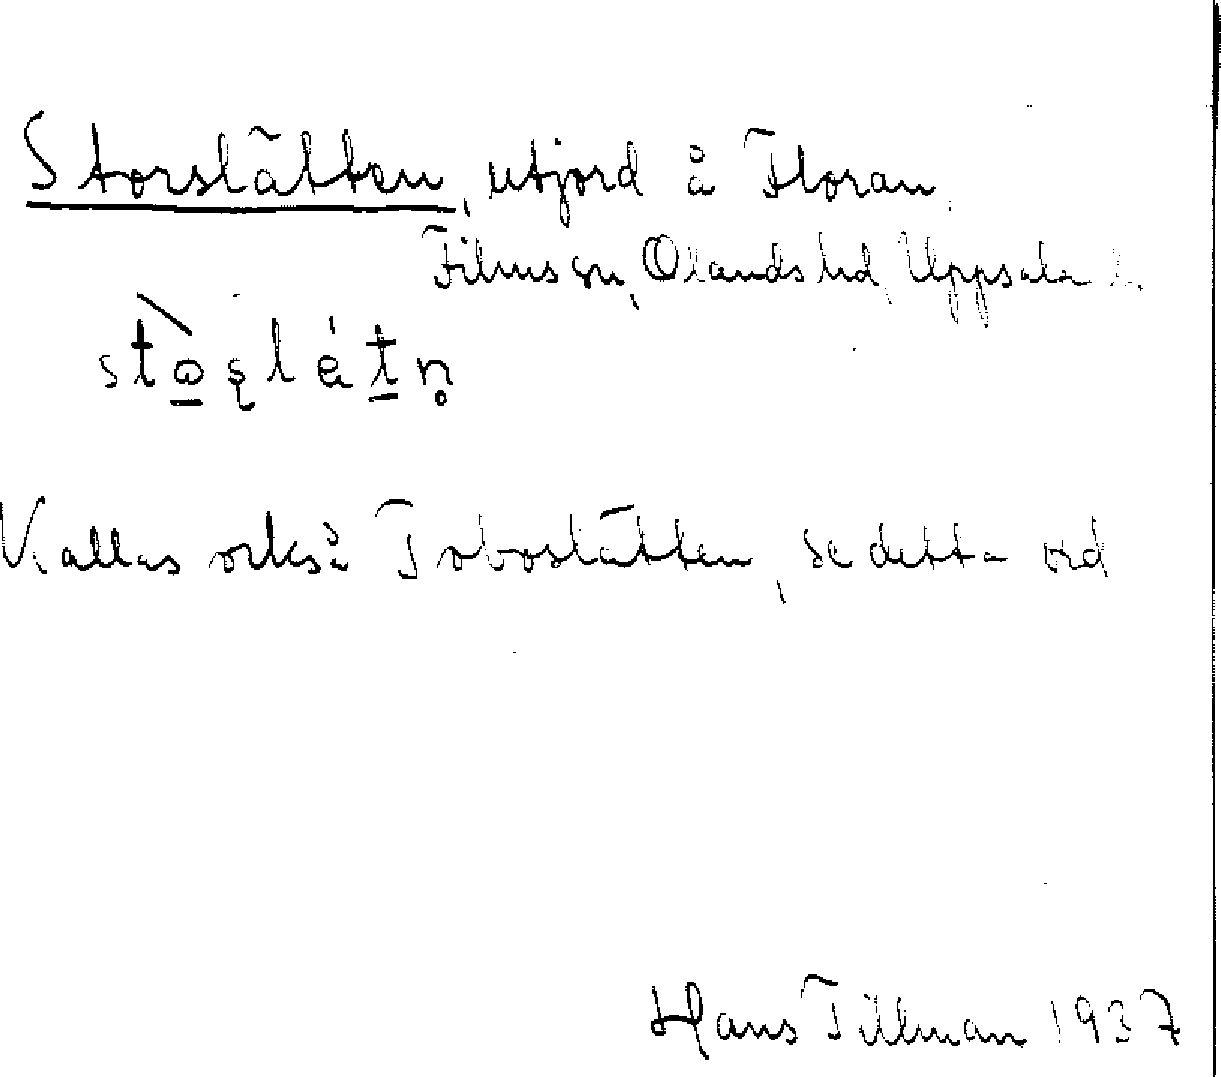 Storslätten, utjord å Floran,
Films sn, Olands hd, Uppsala l.
Kallas också Toboslätten, se detta ord
Hans Tillman 1937